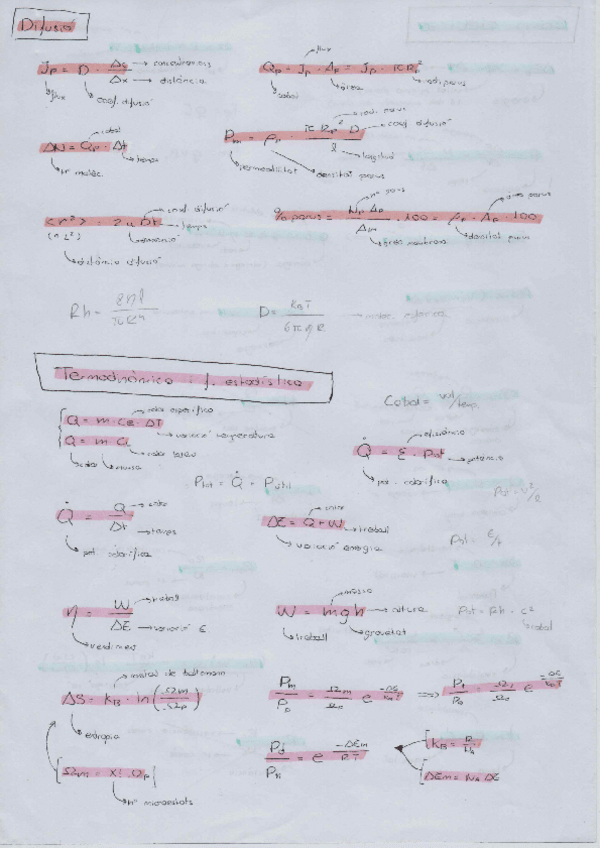 Difusió
Jp = D · Δc/Δx → concentracions → distància
flux
coef. difusió
Qp = Jp · Ap = Jp · πRp²
flux
cabal
àrea
radi porus
ΔN = Qp · Δt
cabal
temps
nº molèc.
Pm = ρp · πRp² D / l
radi porus
coef difusió
longitud
permeabilitat
densitat porus
<r²> = 2n Dt
coef. difusió
temps
dimensió
distància difusió
% porus = Np Ap / Am · 100 = ρp · Ap · 100
nº porus
àrea porus
àrea membrana
densitat porus
Rh = 8ηl / πR⁴
D = KBT / 6πηR
Termodinàmica i f. estadística
Q = m · ce · ΔT
calor específica
variació temperatura
Q = m CL
calor
massa
calor latent
Cabal = vol/temps
Q̇ = ε · Ptot
eficiència
potència
pot. calorífica
Ptot = Q̇ + Pútil
Pot = V²/R
Q̇ = Q/Δt
calor
temps
pot. calorífica
ΔE = Q + W
calor
treball
variació energia
Pot = E/t
η = W/ΔE
treball
variació E
rendiment
W = mgh
massa
altura
treball
gravetat
Pot = Rh · C²
cabal
ΔS = KB · ln(Ωm/Ωp)
entropia
Pm/Po = Ωm/Ωo e^(-ΔE/KBT) ⟹
nº microestats
KB = R/NA
ΔEm = NA ΔE